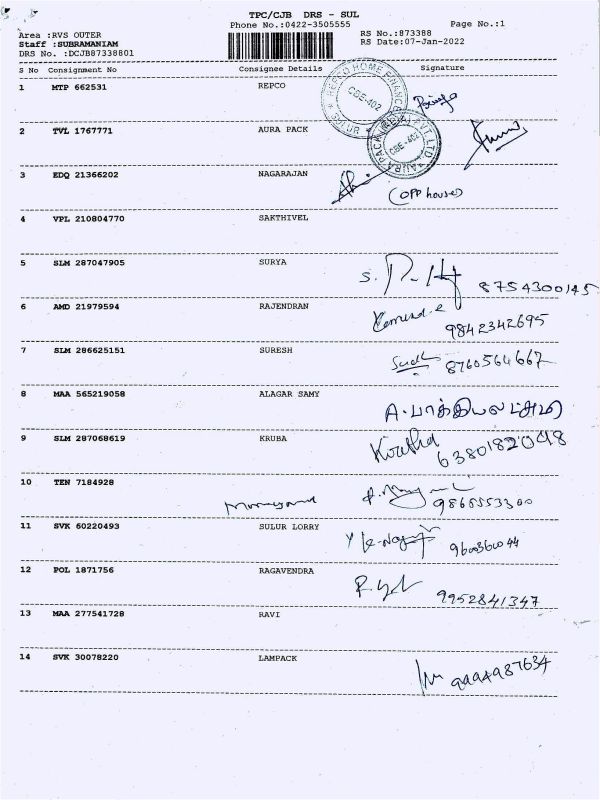 TPC/CJB DRS - SUL
Phone No.:0422-3505555
Page No.:1
Area :RVS OUTER
Staff :SUBRAMANIAM
DRS No. :DCJB87338801
RS No.:873388
RS Date:07-Jan-2022
S No Consignment No Consignee Details Signature
1 MTP 662531 REPCO
REPCO HOME FINANCE
CBE-402
SULUR
2 TVL 1767771 AURA PACK
AURA PACK (INDIA) PVT LTD
CBE-402
3 EDQ 21366202 NAGARAJAN
(opp house)
4 VPL 210804770 SAKTHIVEL
5 SLM 287047905 SURYA
8754300145
6 AMD 21979594 RAJENDRAN
9842342695
7 SLM 286625151 SURESH
8760564667
8 MAA 565219058 ALAGAR SAMY A. பாக்கியலட்சுமி
9 SLM 287068619 KRUBA
6380182048
10 TEN 7184928
9865553300
11 SVK 60220493 SULUR LORRY
9600360044
12 POL 1871756 RAGAVENDRA
9952841347
13 MAA 277541728 RAVI
14 SVK 30078220 LAMPACK 9994987634